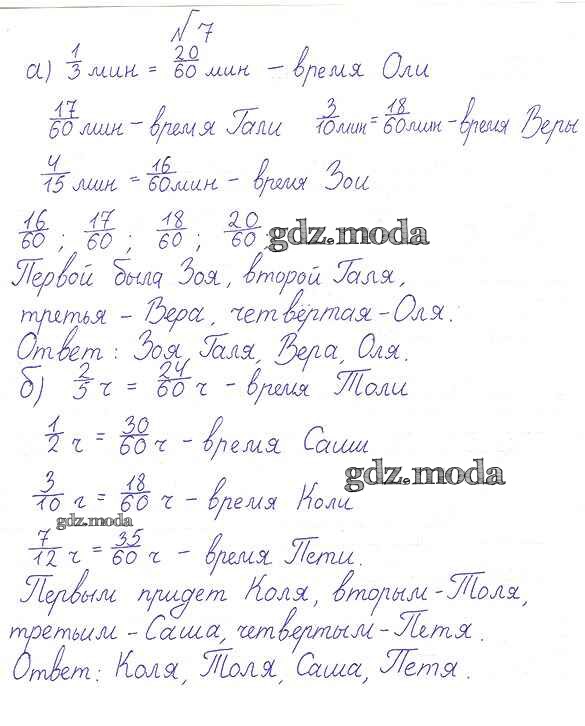 № 7
а) 1/3 мин = 20/60 мин – время Оли
17/60 мин – время Гали 3/10 мин = 18/60 мин – время Веры
4/15 мин = 16/60 мин – время Зои
16/60 ; 17/60 ; 18/60 ; 20/60 ; gdz.moda
Первой была Зоя, второй Галя,
третья – Вера, четвёртая – Оля.
Ответ : Зоя, Галя, Вера, Оля.
б) 2/5 ч = 24/60 ч – время Толи
1/2 ч = 30/60 ч – время Саши
gdz.moda
3/10 ч = 18/60 ч – время Коли
gdz.moda
7/12 ч = 35/60 ч – время Пети.
Первым придет Коля, вторым – Толя,
третьим – Саша, четвертым – Петя.
Ответ : Коля, Толя, Саша, Петя.